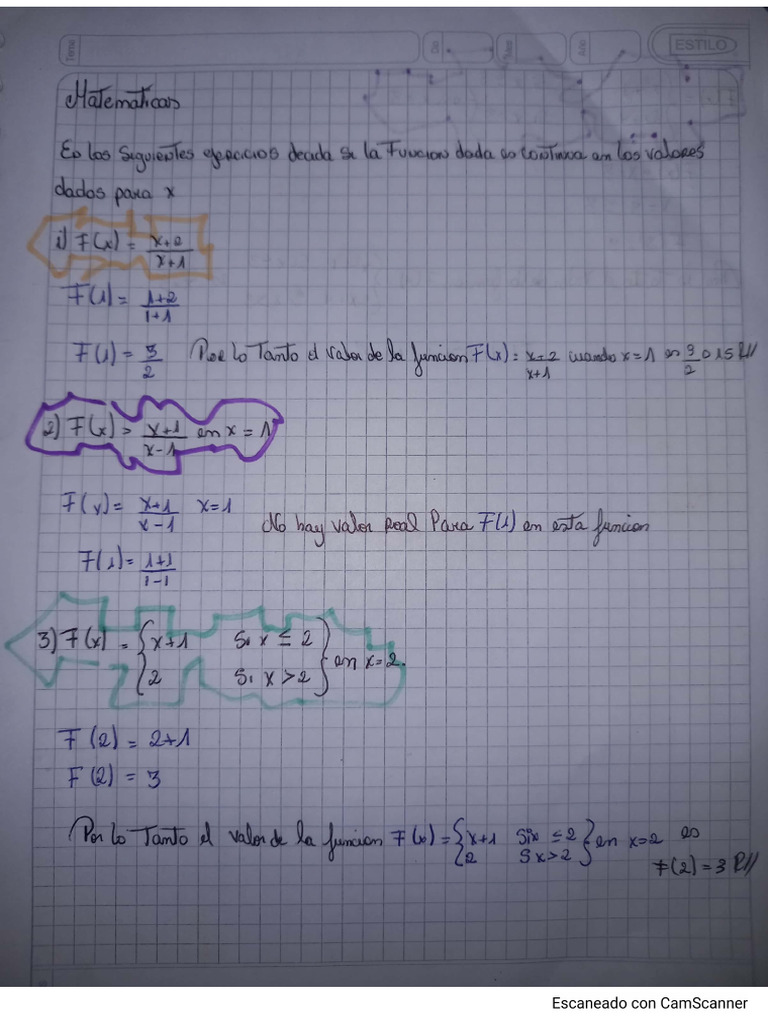 Tema
Día
Mes
Año
ESTILO
Matematicas
En los Siguientes ejercicios decida si la Funcion dada es continua en los valores
dados para x
1) F(x) = x+2 / x+1
F(1) = 1+2 / 1+1
F(1) = 3/2 Por lo Tanto el valor de la funcion F(x) = x+2 / x+1 cuando x=1 es 3/2 o 1.5 R//
2) F(x) = x+1 / x-1 en x = 1
F(x) = x+1 / x-1 x=1
No hay valor real Para F(1) en esta funcion
F(1) = 1+1 / 1-1
3) F(x) = { x+1 Si x ≤ 2
2 Si x > 2 } en x=2.
F(2) = 2+1
F(2) = 3
Por lo Tanto el valor de la funcion F(x) = { x+1 Si x ≤ 2 } en x=2 es
2 Si x>2 F(2) = 3 R//
Escaneado con CamScanner